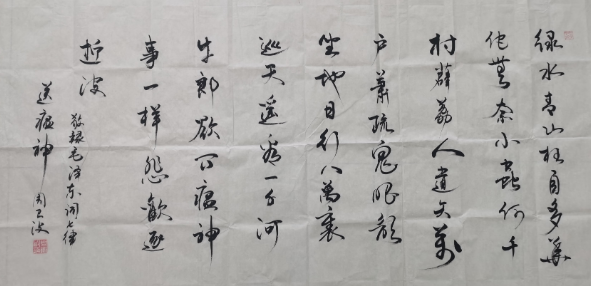 绿水青山枉自多華
佗無奈小虫何千
村薜荔人遺矢萬
户蕭疏鬼唱歌
坐地日行八萬裏
巡天遥看一千河
牛郎欲问瘟神
事一样悲歡逐
逝波
敬録毛泽东词七律
送瘟神 周